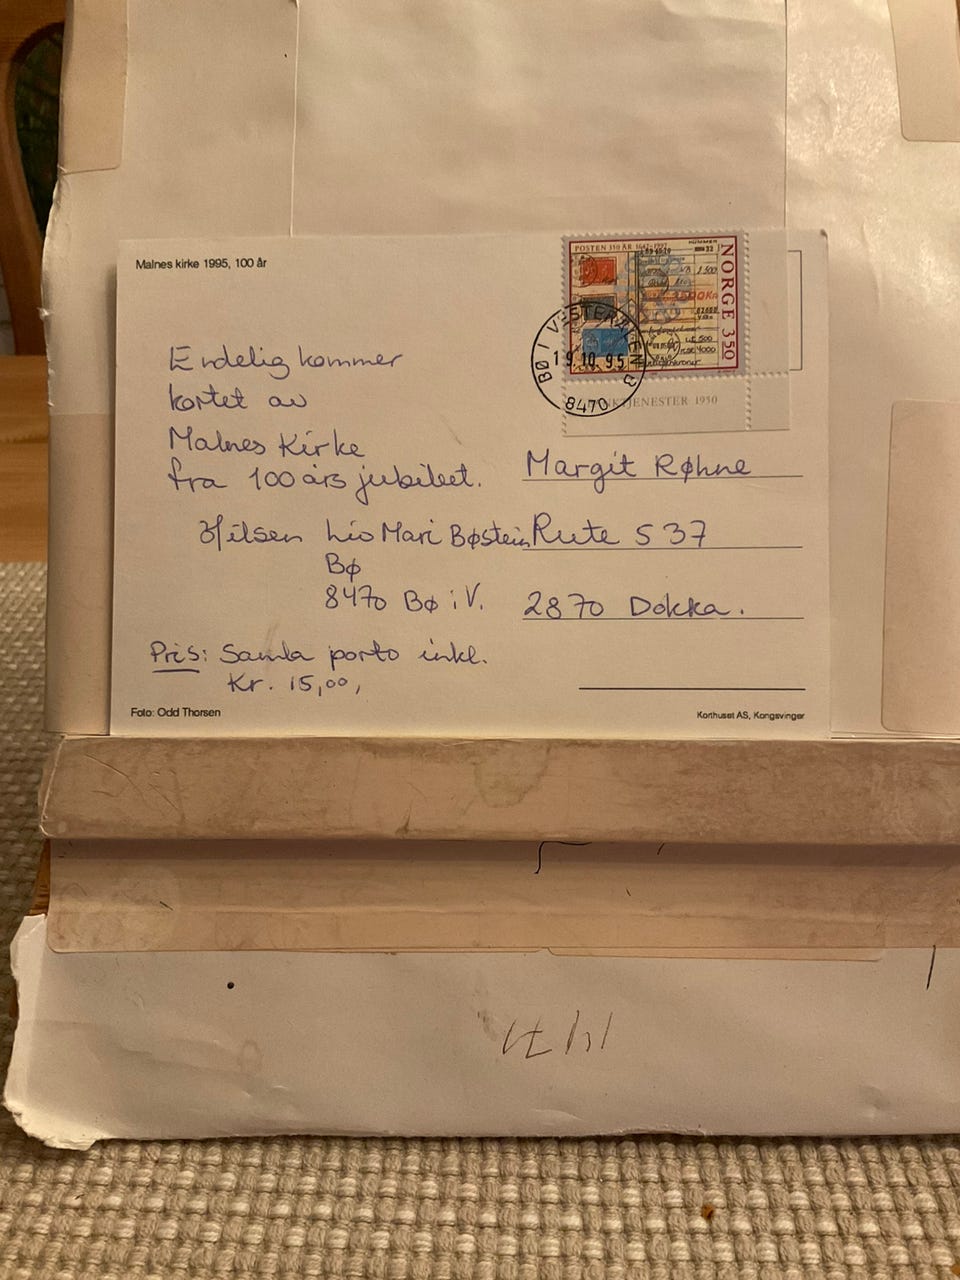 Malnes kirke 1995, 100 år
POSTEN 350 ÅR 1647-1997
NORGE 350
BØ I VESTERÅLEN B
19.10.95
8470
TJENESTER 1950
Endelig kommer
kortet av
Malnes Kirke
fra 100 års jubileet.
Hilsen Liv Mari Bøstein
Bø
8470 Bø i V.
Margit Røhne
Rute 537
2870 Dokka.
Pris: Samla porto inkl.
Kr. 15,00,
Foto: Odd Thorsen
Korthuset AS, Kongsvinger